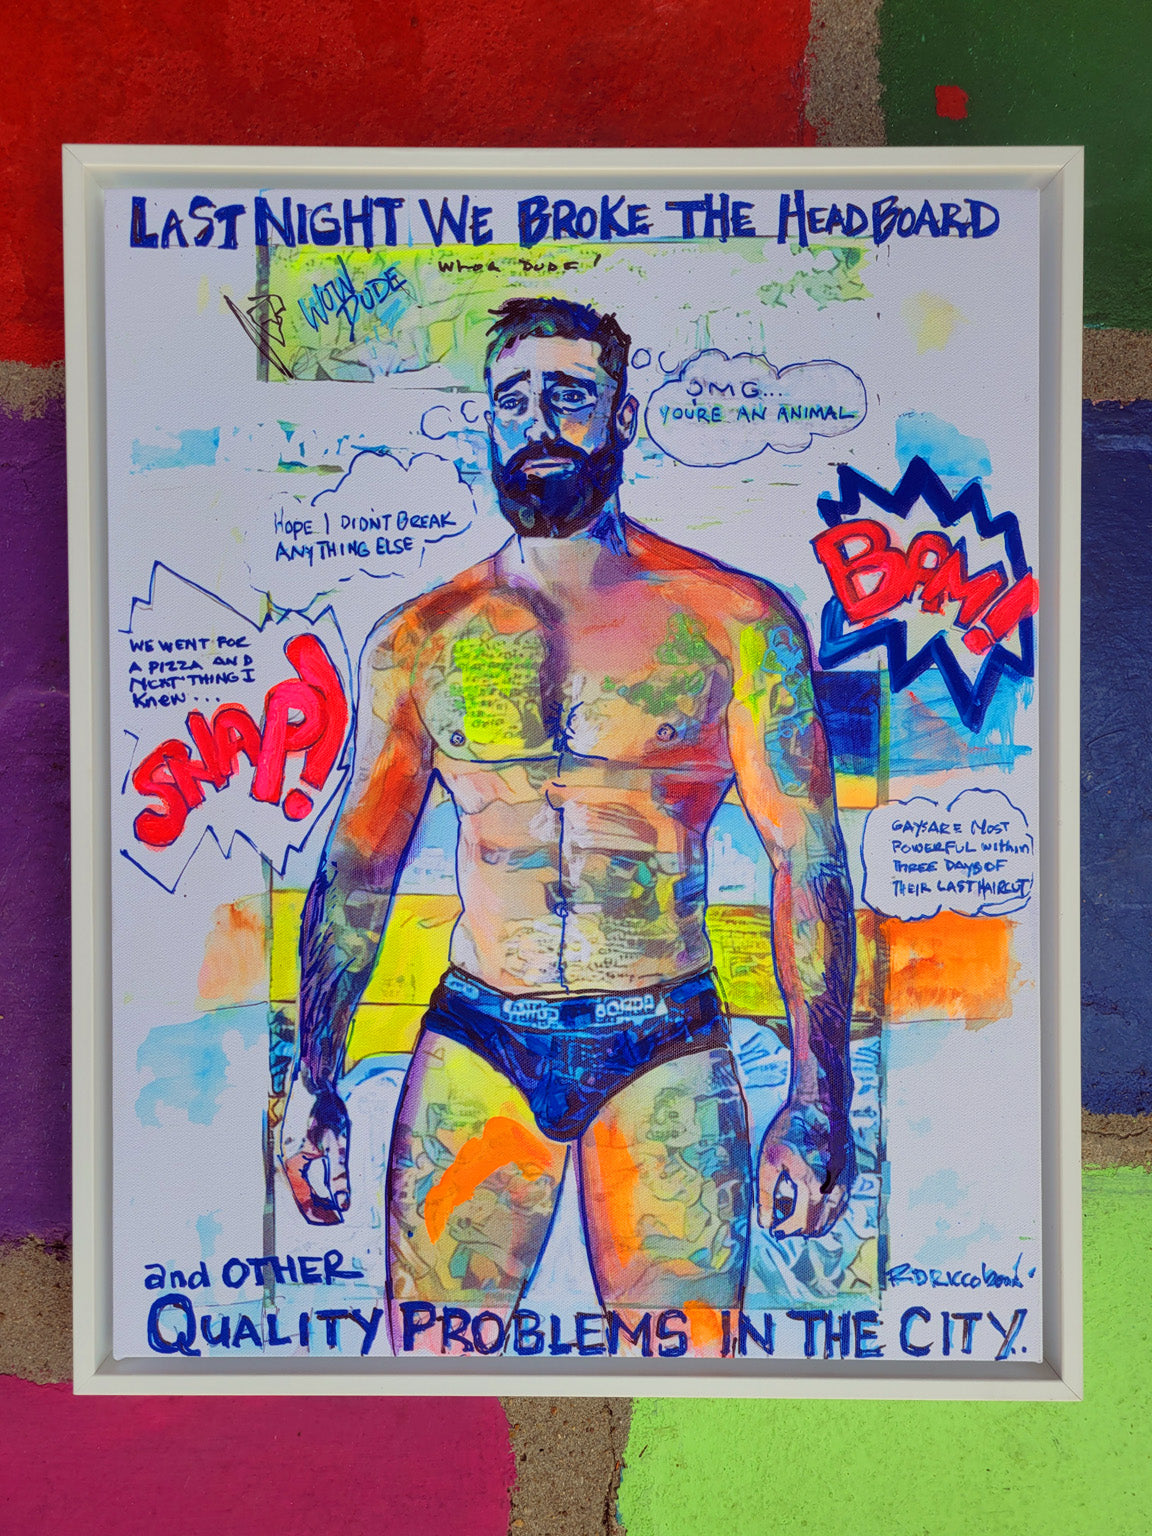 LAST NIGHT WE BROKE THE HEADBOARD
WHOA DUDE!
WOW
DUDE
OMG...
YOU'RE AN ANIMAL
HOPE I DIDN'T BREAK
ANYTHING ELSE
BAM!
WE WENT FOR
A PIZZA AND
NEXT THING I
KNEW...
SNAP!
GAYS ARE MOST
POWERFUL WITHIN
THREE DAYS OF
THEIR LAST HAIRCUT
and OTHER
QUALITY PROBLEMS IN THE CITY.